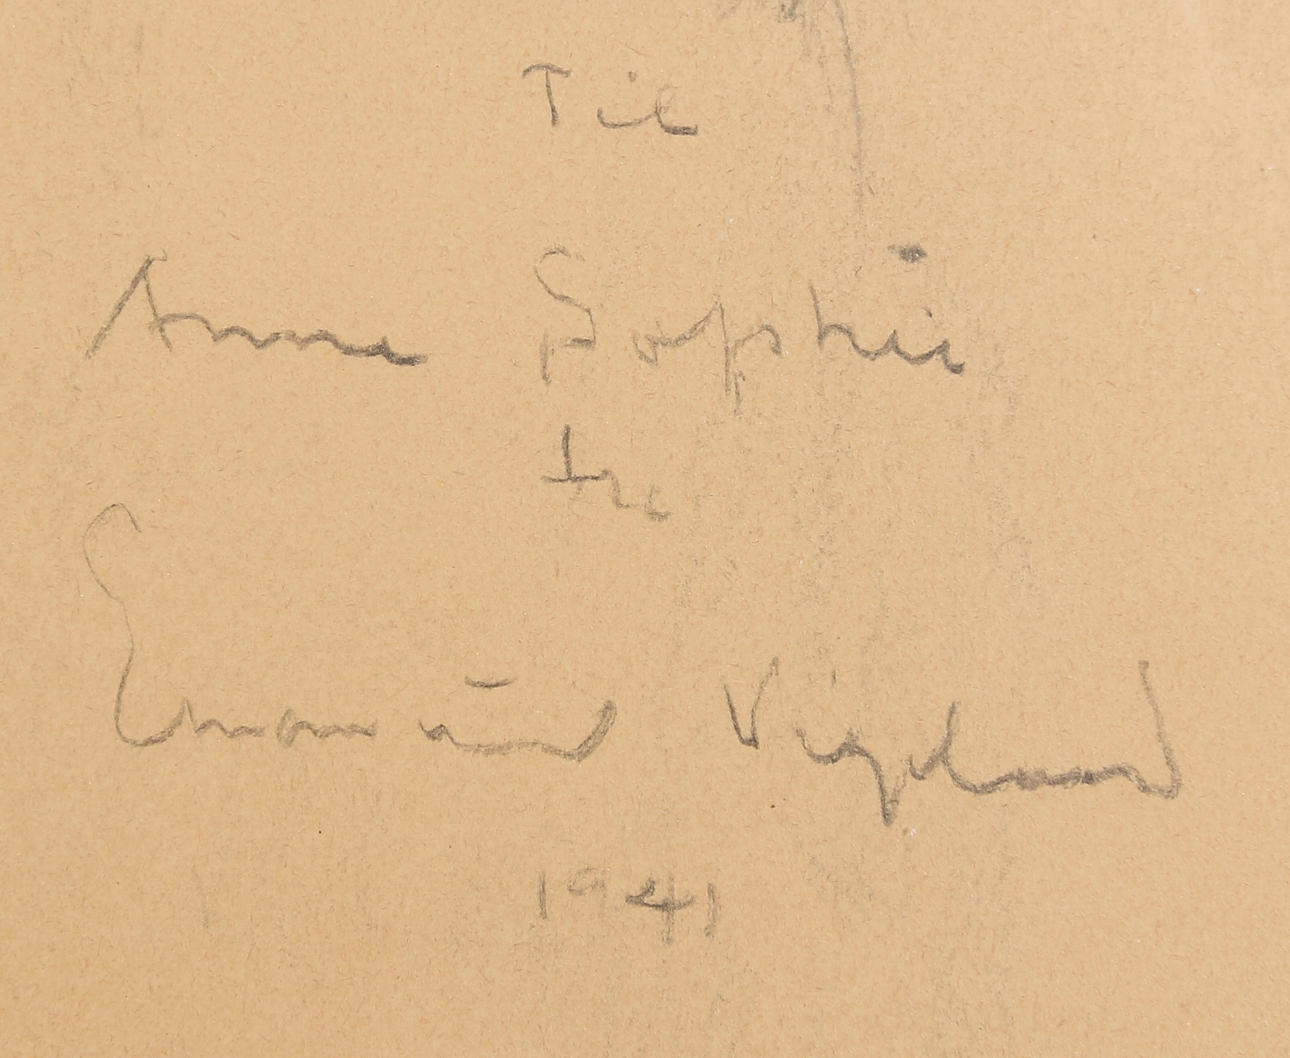 Til
Anna Sophie
fra
Emanuel Vigeland
1941